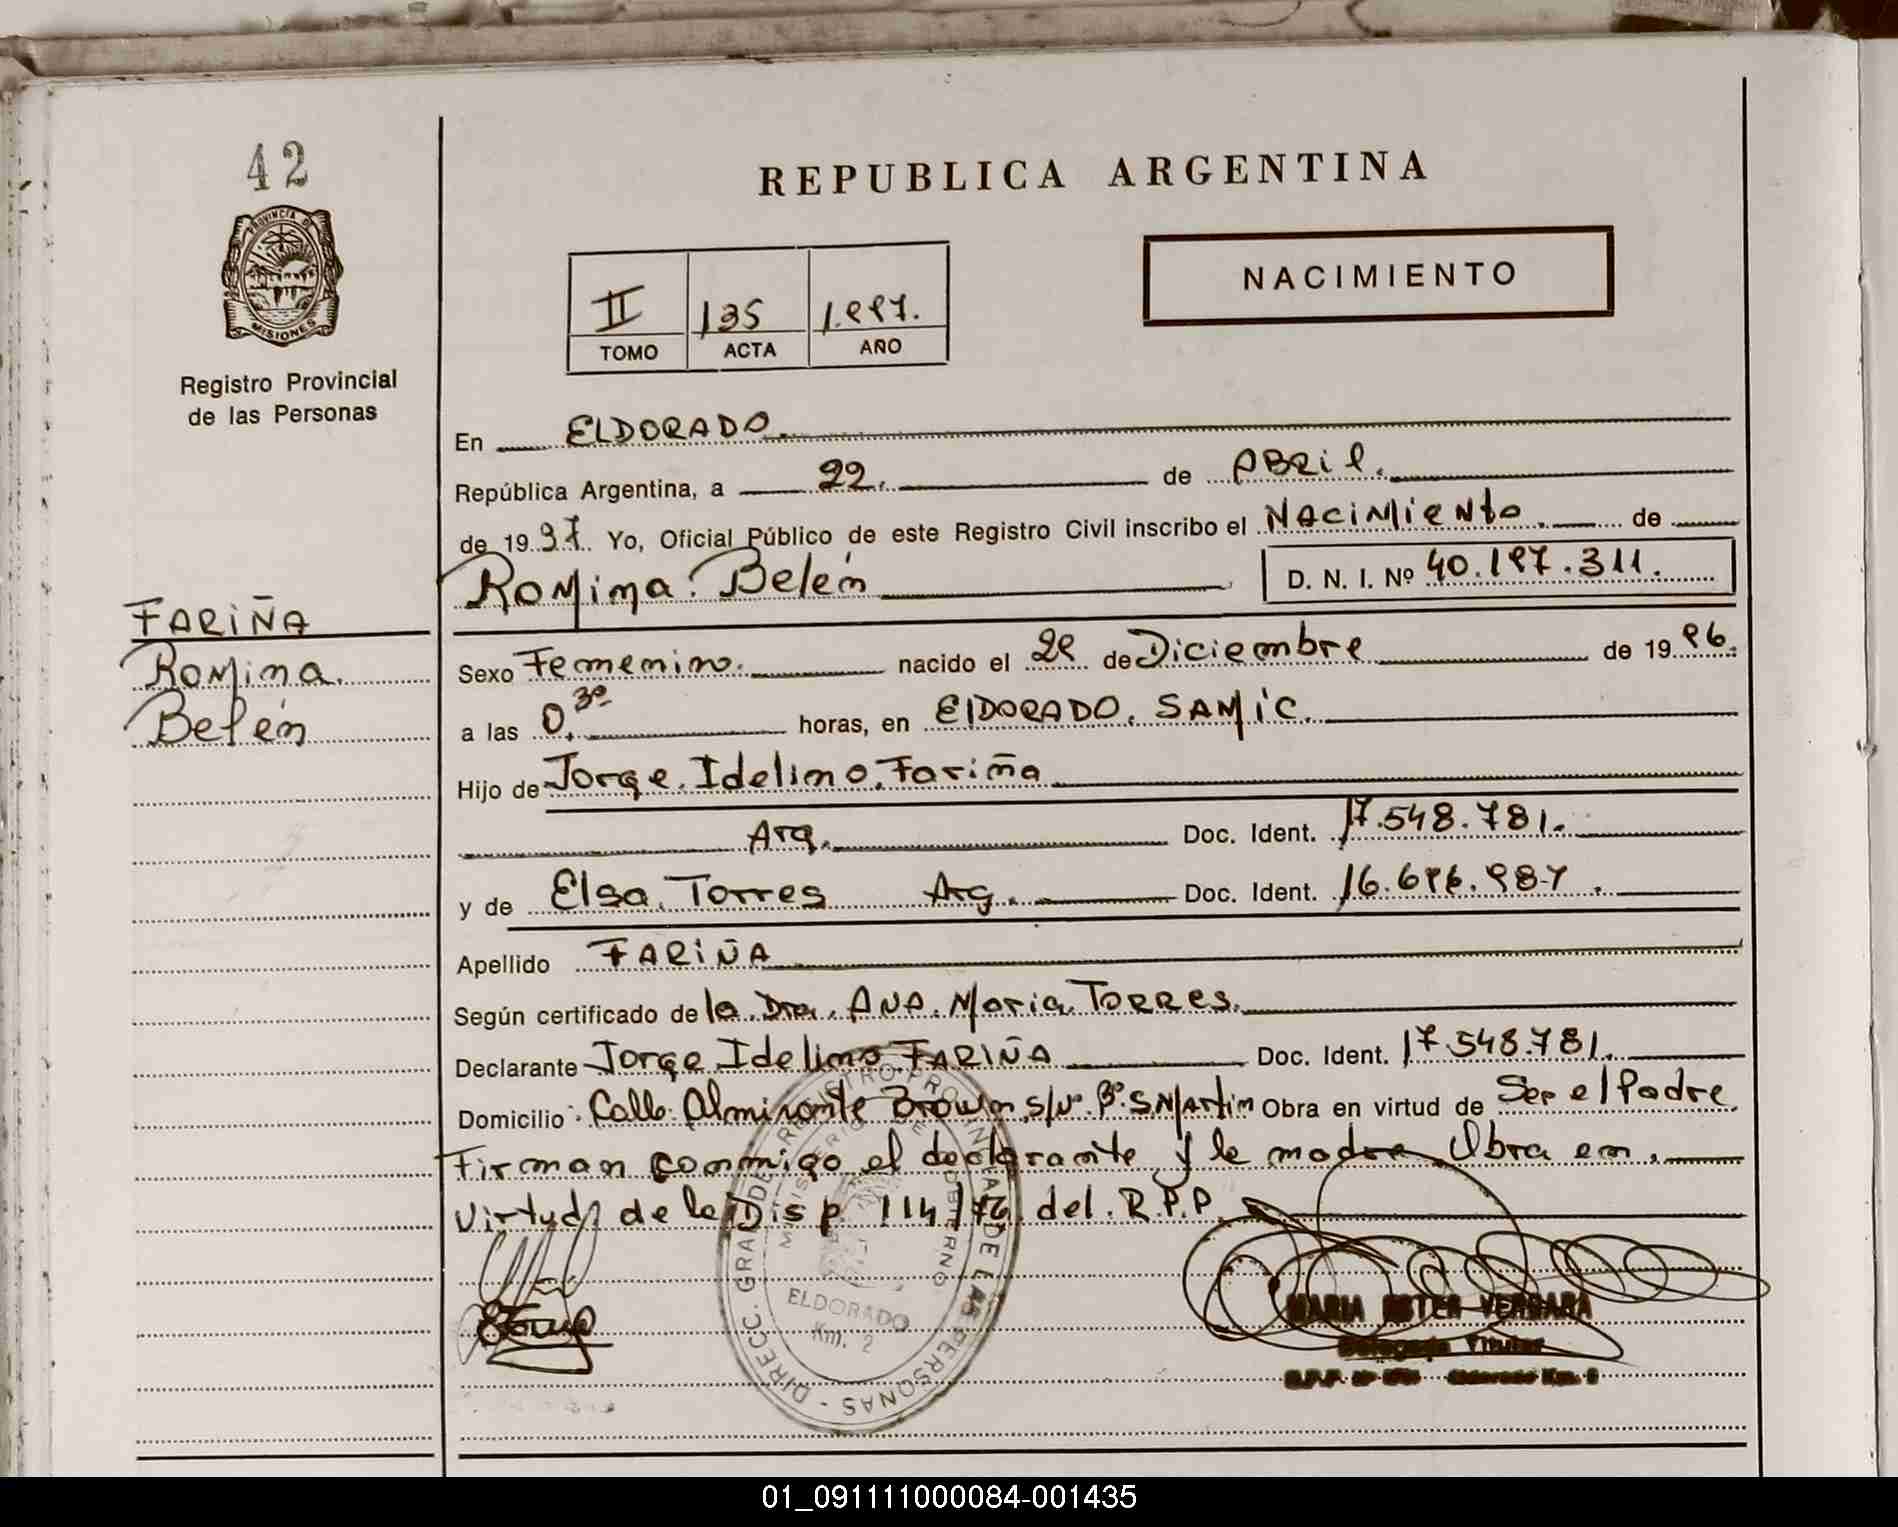 42
REPUBLICA ARGENTINA
PROVINCIA DE
MISIONES
Registro Provincial
de las Personas
II 135 1.997.
TOMO ACTA AÑO
NACIMIENTO
En ELDORADO.
República Argentina, a 22. de ABRil.
de 1997. Yo, Oficial Público de este Registro Civil inscribo el NACiMieNto. de
Romina. Belén D. N. I. Nº 40.197.311.
FARiÑA
Romina.
Belén
Sexo Femenino. nacido el 29 de Diciembre de 1996.
a las 0,30 horas, en ElDORADO. SAMiC.
Hijo de Jorge. Idelino. Fariña
Arg. Doc. Ident. 17.548.781.
y de Elsa. Torres Arg. Doc. Ident. 16.696.987.
Apellido FARiÑA
Según certificado de la. Dra. ANA. Maria. TORRes.
Declarante Jorge Idelino. FARIÑA Doc. Ident. 17.548.781.
Domicilio Calle. Almirante Brown. S/Nº. Bº. S Martin Obra en virtud de Ser el Padre.
Firman conmigo el declarante y la madre. Obra en.
virtud de la Disp. 114/76. del. R.P.P.
DIRECC. GRAL. DE REGISTRO PROVINCIAL DE LAS PERSONAS -
MINISTERIO DE GOBIERNO
ELDORADO
Km. 2
MARIA ESTER VERGARA
Delegada Titular
01_091111000084-001435